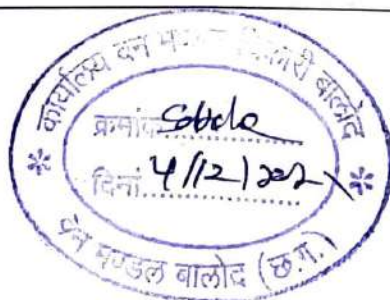 कार्यालय वन मण्डल अधिकारी बालोद
क्रमांक
दिनां. 4/12/202
वन मण्डल बालोद (छ.ग.)